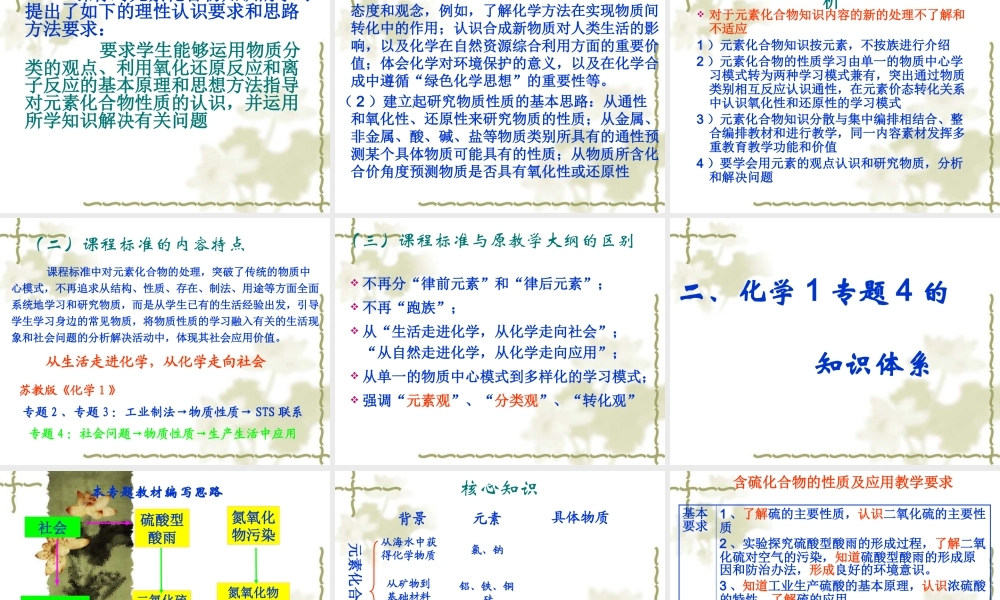 提出了如下的理性认识要求和思路
方法要求：
要求学生能够运用物质分
类的观点、利用氧化还原反应和离
子反应的基本原理和思想方法指导
对元素化合物性质的认识，并运用
所学知识解决有关问题
态度和观念，例如，了解化学方法在实现物质间
转化中的作用；认识合成新物质对人类生活的影
响，以及化学在自然资源综合利用方面的重要价
值；体会化学对环境保护的意义，以及在化学合
成中遵循“绿色化学思想”的重要性等。
（2）建立起研究物质性质的基本思路：从通性
和氧化性、还原性来研究物质的性质；从金属、
非金属、酸、碱、盐等物质类别所具有的通性预
测某个具体物质可能具有的性质；从物质所含化
合价角度预测物质是否具有氧化性或还原性
析
对于元素化合物知识内容的新的处理不了解和
不适应
1）元素化合物知识按元素，不按族进行介绍
2）元素化合物的性质学习由单一的物质中心学
习模式转为两种学习模式兼有，突出通过物质
类别相互反应认识通性，在元素价态转化关系
中认识氧化性和还原性的学习模式
3）元素化合物知识分散与集中编排相结合、整
合编排教材和进行教学，同一内容素材发挥多
重教育教学功能和价值
4）要学会用元素的观点认识和研究物质，分析
和解决问题
（二）课程标准的内容特点
课程标准中对元素化合物的处理，突破了传统的物质中
心模式，不再追求从结构、性质、存在、制法、用途等方面全面
系统地学习和研究物质，而是从学生已有的生活经验出发，引导
学生学习身边的常见物质，将物质性质的学习融入有关的生活现
象和社会问题的分析解决活动中，体现其社会应用价值。
从生活走进化学，从化学走向社会
苏教版《化学1》
专题2、专题3：工业制法→物质性质→STS联系
专题4：社会问题→物质性质→生产生活中应用
（三）课程标准与原教学大纲的区别
不再分“律前元素”和“律后元素”；
不再“跑族”；
从“生活走进化学，从化学走向社会”；
“从自然走进化学，从化学走向应用”；
从单一的物质中心模式到多样化的学习模式；
强调“元素观”、“分类观”、“转化观”
二、化学1专题4的
知识体系
本专题教材编写思路
社会
硫酸型
酸雨
氮氧化
物污染
二氧化硫
氮氧化物
核心知识
背景 元素 具体物质
元素化合
从海水中获
得化学物质
氯、钠
从矿物到
基础材料
铝、铁、铜
硅
含硫化合物的性质及应用教学要求
基本
要求
1、了解硫的主要性质，认识二氧化硫的主要性
质
2、实验探究硫酸型酸雨的形成过程，了解二氧
化硫对空气的污染，知道硫酸型酸雨的形成原
因和防治办法，形成良好的环境意识。
3、知道工业生产硫酸的基本原理，认识浓硫酸
的特性，了解硫的应用